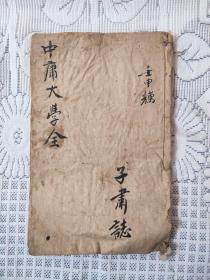 中庸大學全
壬申穐
子肅誌